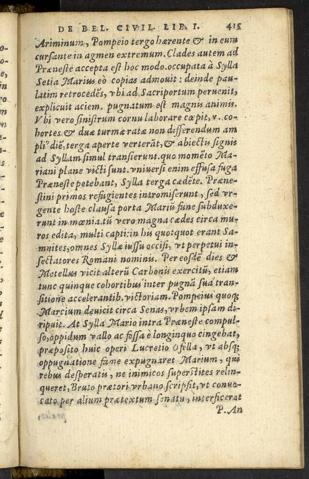 DE BEL. CIVIL. LIB. I. 415
Ariminum, Pompeio tergo hærente & in eum
cursante in agmen extremum. Clades autem ad
Præneste accepta est hoc modo. occupata à Sylla
Setia Marius eò copias admouit: deinde pau-
latim retrocedēs, vbi ad Sacriportum peruenit,
explicuit aciem. pugnatum est magnis animis.
Vbi vero sinistrum cornu laborare cœpit, v. co-
hortes & duæ turmæ rata non differendum am
pli' diē, terga aperte verterāt, & abiectis signis
ad Syllam simul transierunt. quo momēto Ma-
riani plane victi sunt. vniuersi enim effusa fuga
Præneste petebant, Sylla terga cædēte. Præne-
stini primos refugientes intromiserunt, sed vr-
gente hoste clausa porta Mariū fune subduxe-
runt in mœnia. tū vero magna cædes circa mu-
ros edita, multi capti: in his quotquot erant Sa-
mnites, omnes Syllæ iussu occisi, vt perpetui in-
sectatores Romani nominis. Per eosdē dies &
Metellus vicit alterū Carbonis exercitū, etiam
tunc quinque cohortibus inter pugnā sua tran-
sitione accelerantib. victoriam. Pompeius quoq;
Marcium deuicit circa Senas, vrbem ipsam di-
ripuit. At Sylla Mario intra Præneste compul-
so, oppidum vallo ac fossa è longinquo cingebat,
præposito huic operi Lucretio Ofella, vt absq;
oppugnatione fame expugnaret Marium, qui
rebus desperatis, ne inimicos superstites relin-
queret, Bruto prætori vrbano scripsit, vt conuo-
cato per alium prætextum senatu, interficeret
P. An